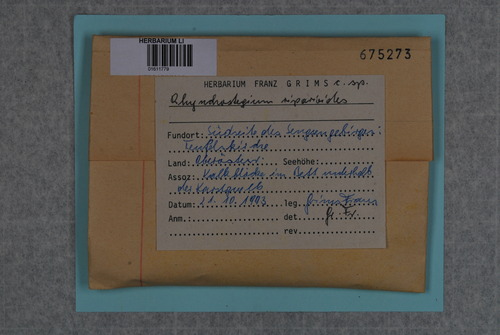 HERBARIUM LI
675273
HERBARIUM FRANZ GRIMS c. sp.
Rhynchostegium riparioides
Fundort: Südseite des Sengsengebirges:
Land: Oberösterr. Seehöhe:
Assoz: Kalkblöcke im Bett unterhalb
Datum: 11.10.1993 leg. Grims Franz
Anm.: det. Gr. Fr.
rev.